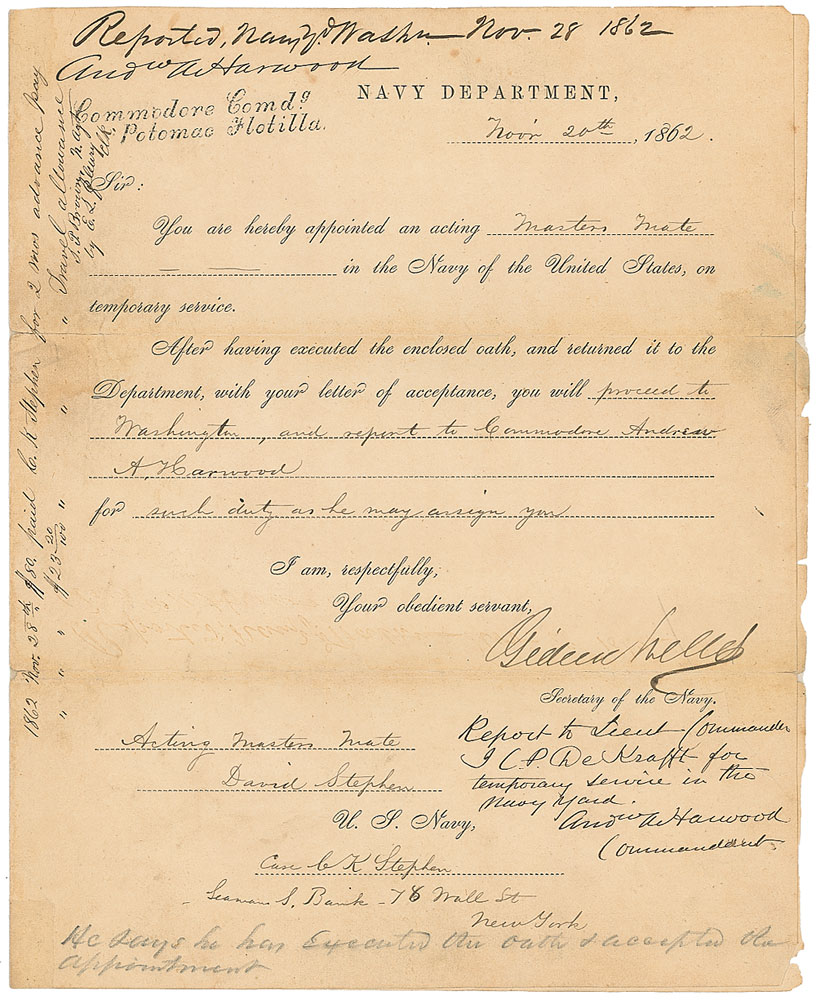 Reported, Navy Yd Washn Nov. 28 1862
Andw A Harwood
Commodore Comdg
Potomac Flotilla.
NAVY DEPARTMENT,
Nov'r 20th, 1862.
Sir:
You are hereby appointed an acting Masters Mate
— — in the Navy of the United States, on
temporary service.
After having executed the enclosed oath, and returned it to the
Department, with your letter of acceptance, you will proceed to
Washington, and report to Commodore Andrew
A, Harwood
for such duty as he may assign you
I am, respectfully,
Your obedient servant,
Gideon Welles
Secretary of the Navy.
Acting Masters Mate
David Stephen
U. S. Navy,
Care C K Stephen
Seamans S. Bank - 78 Wall St
New York
Report to Lieut Commander
J C P. De Krafft for
temporary service in the
Navy Yard.
Andw A Harwood
Commandant.
He says he has Executed the oath & accepted the
appointment.
1862 Nov. 28th $80. paid D. K Stephen for 2 mos advance pay
" " " $23 20/100 " " " Travel allowance
S. P. Brown N. Agt
by E. L. Clk.